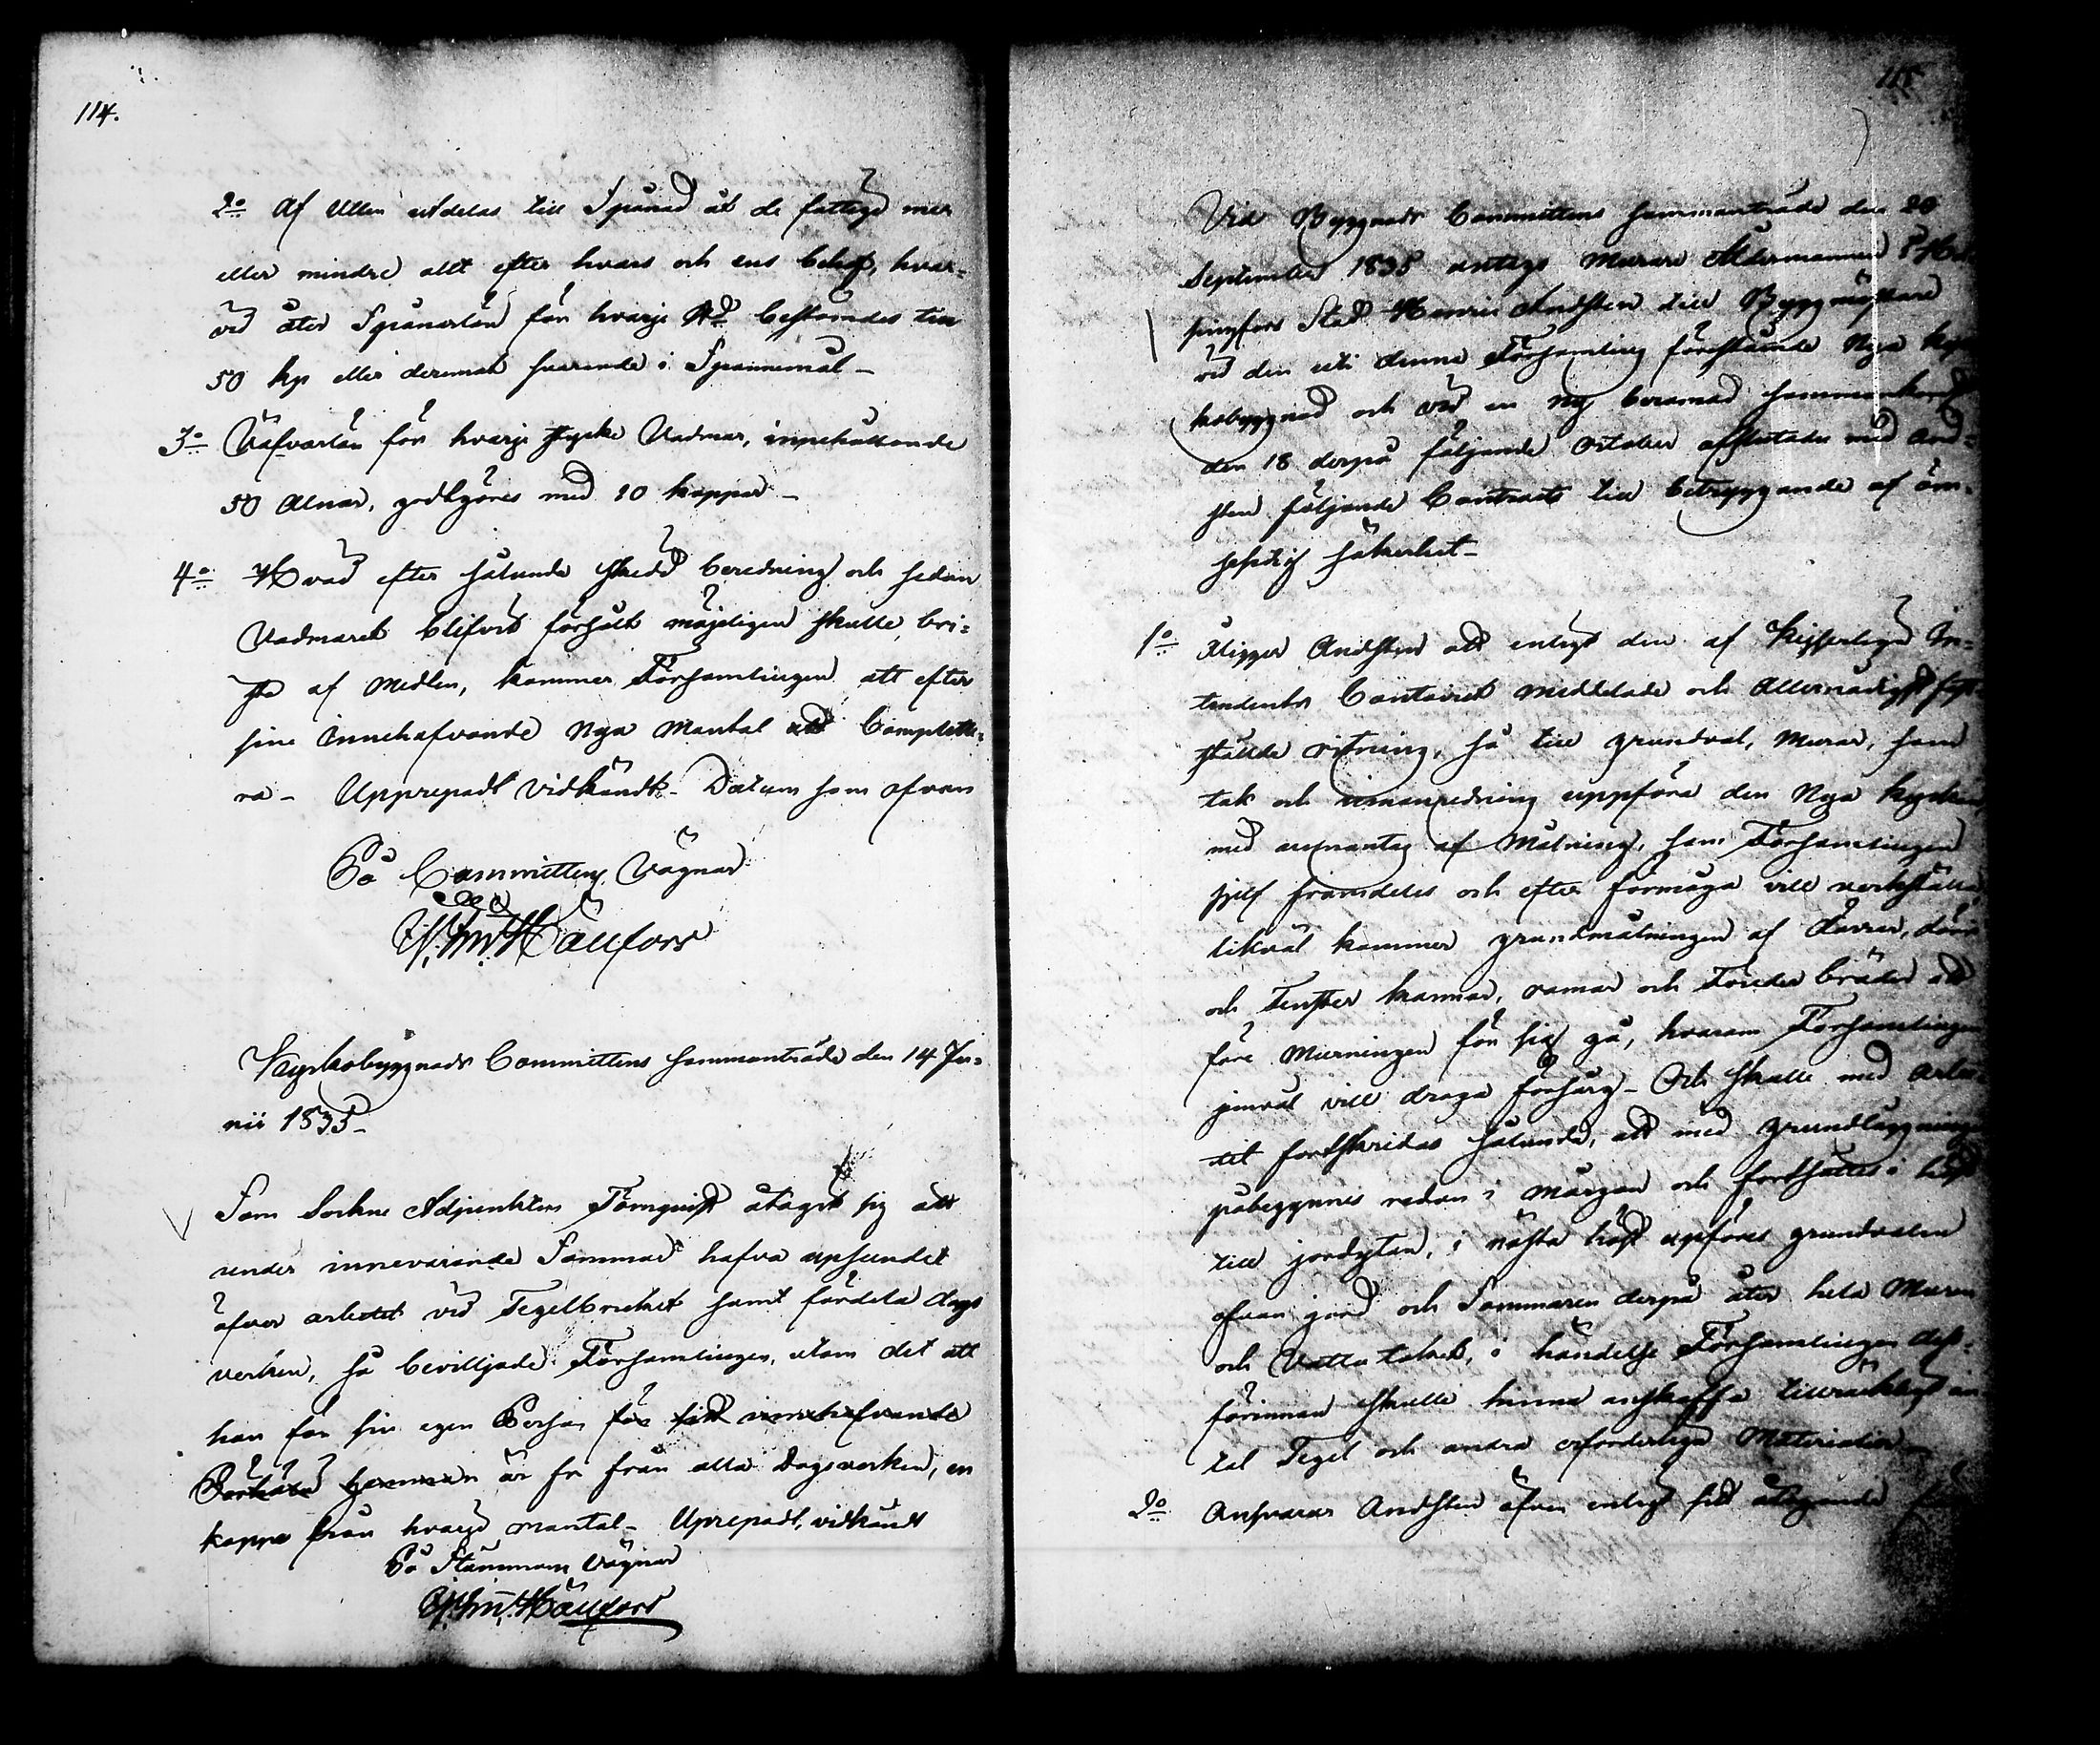 114.
2o Af Ullen utdelas till Spånad åt de fattige mer
eller mindre allt efter hvars och ens behof, hvar-
vid åter Spånarlön för hvarje bestämdes till
50 kp eller deremot svarande i Spannemål -
3o Väfvarlön för hvarje stycke Vadmar, innehållande
50 Alnar, godtgöres med 20 kappar -
4o Hvad efter sålunda skedd beredning och sedan
Vadmaret blifvit försålt möjeligen skulle bri-
sta af Medlen, kommer Församlingen att efter
sine innehafvande Nya Mantal att Complette-
ra - Upprepadt Vidkändt - Datum som ofvan
På Committens Vägnar
Kyrkobyggnads Committens sammanträde den 14 Ju-
nii 1835 -
Som Sockne Adjunkten Törnqvist åtagit sig att
under innevarande Sommar hafva upseendet
öfver arbetet vid Tegelbruket samt fördela dags
verken, så beviljade Församlingen, utom det att
han för sin egen Person för sitt innehafvande
är fri från alla Dagsverken, en
kappe från hvarje mantal - Uprepadt, vidkändt
På Stämmans Vägnar
115
Vid Byggnads Committens sammanträde den 20
September 1835 antogs Murare Åldermannen i Hel-
singfors Stad Henric Andsten till Byggmästare
vid den uti denna Församling förestående Nya kyr-
kobyggnad och vid en ny beramad sammankomst
den 18 derpå följande October afslutades med And-
sten följande Contract till betryggande af öm-
sesidig säkerhet -
1o Åligger Andsten att enligt den af Kejserliga In-
tendents Contoiret meddelade och Allernådigst fast-
stälde ritning, så till grundval, Murar, som
tak och innanredning uppföra den Nya kyrkan,
med undantag af Målning, som Församlingen
sjelf framdeles och efter förmåga vill verkställa,
likväl kommer grundmålningen af dörrar, dörr
och Fenster karmar, ramar och Foderbräder att
före Murningen för sig gå, hvarom Församlingen
jemväl vill draga försorg - Och skulle med arbe-
tet fortskridas sålunda, att med grundläggningen
påbegynnes redan i morgon och fortsättes i höst
till jordytan, i nästa höst upföres grundvalen
ofvan jord och Sommaren derpå åter hela Muren
och Vattutaket, i händelse Församlingen dess-
förinnan skulle hinna anskaffa tillräckligt an-
tal Tegel och andra erforderliga Materialier -
2o Ansvarar Andsten äfven enligt sitt åtagande